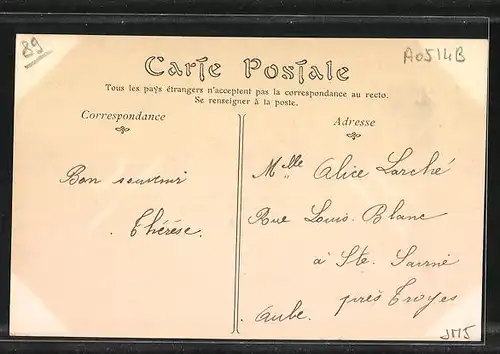 89
A0514B
Carte Postale
Tous les pays étrangers n'acceptent pas la correspondance au recto.
Se renseigner à la poste.
Correspondance
Bon souvenir
Thérèse.
Adresse
Melle Alice Larché
Rue Louis-Blanc
à Ste. Savine
près Troyes
Aube.
JM5